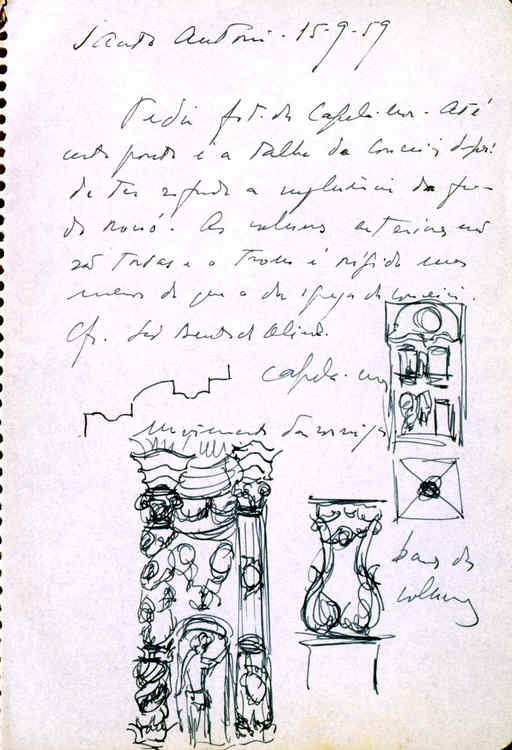 Santo Antonio - 15-9-59
Pedir fot. da Capela-mor. Até
certo ponto é a talha da Conceição depois
de ter a influência da
do As colunas exteriores não
são tortas e o Trono é rígido mas
menos do que o da igreja da Conceição.
Cf. São Bento de Olinda.
Capela-mor
movimento da cornija
base das
colunas